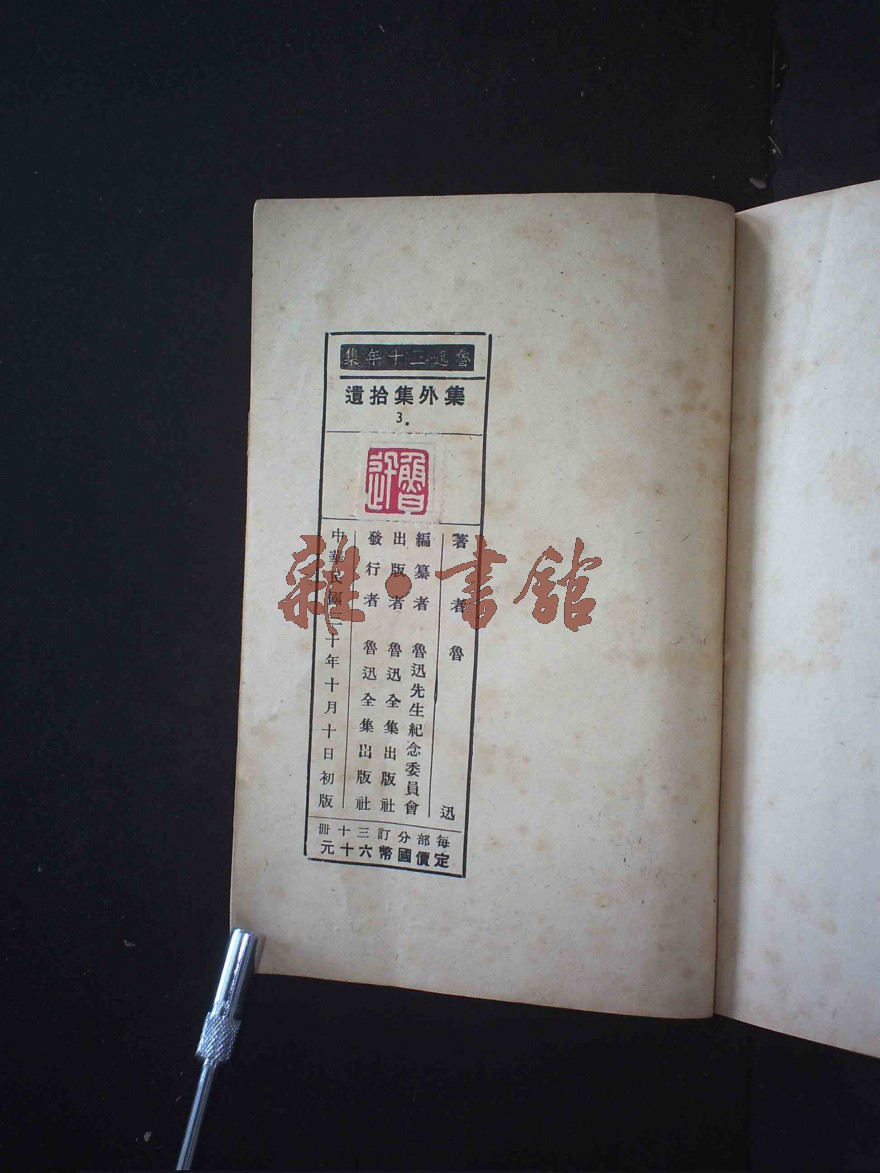 魯迅三十年集
集外集拾遺
3.
魯迅
著者 魯迅
編纂者 魯迅先生紀念委員會
出版者 魯迅全集出版社
發行者 魯迅全集出版社
中華民國三十年十月十日初版
每部分訂三十冊
定價國幣六十元
雜·書館